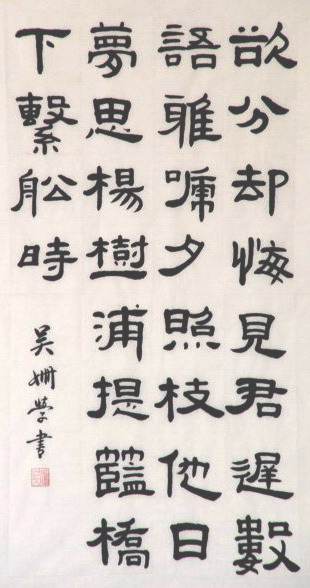 欲分却悔見君遲數
語雅啼夕照枝他日
夢思楊樹浦提籃橋
下繫船時
吴姗學書